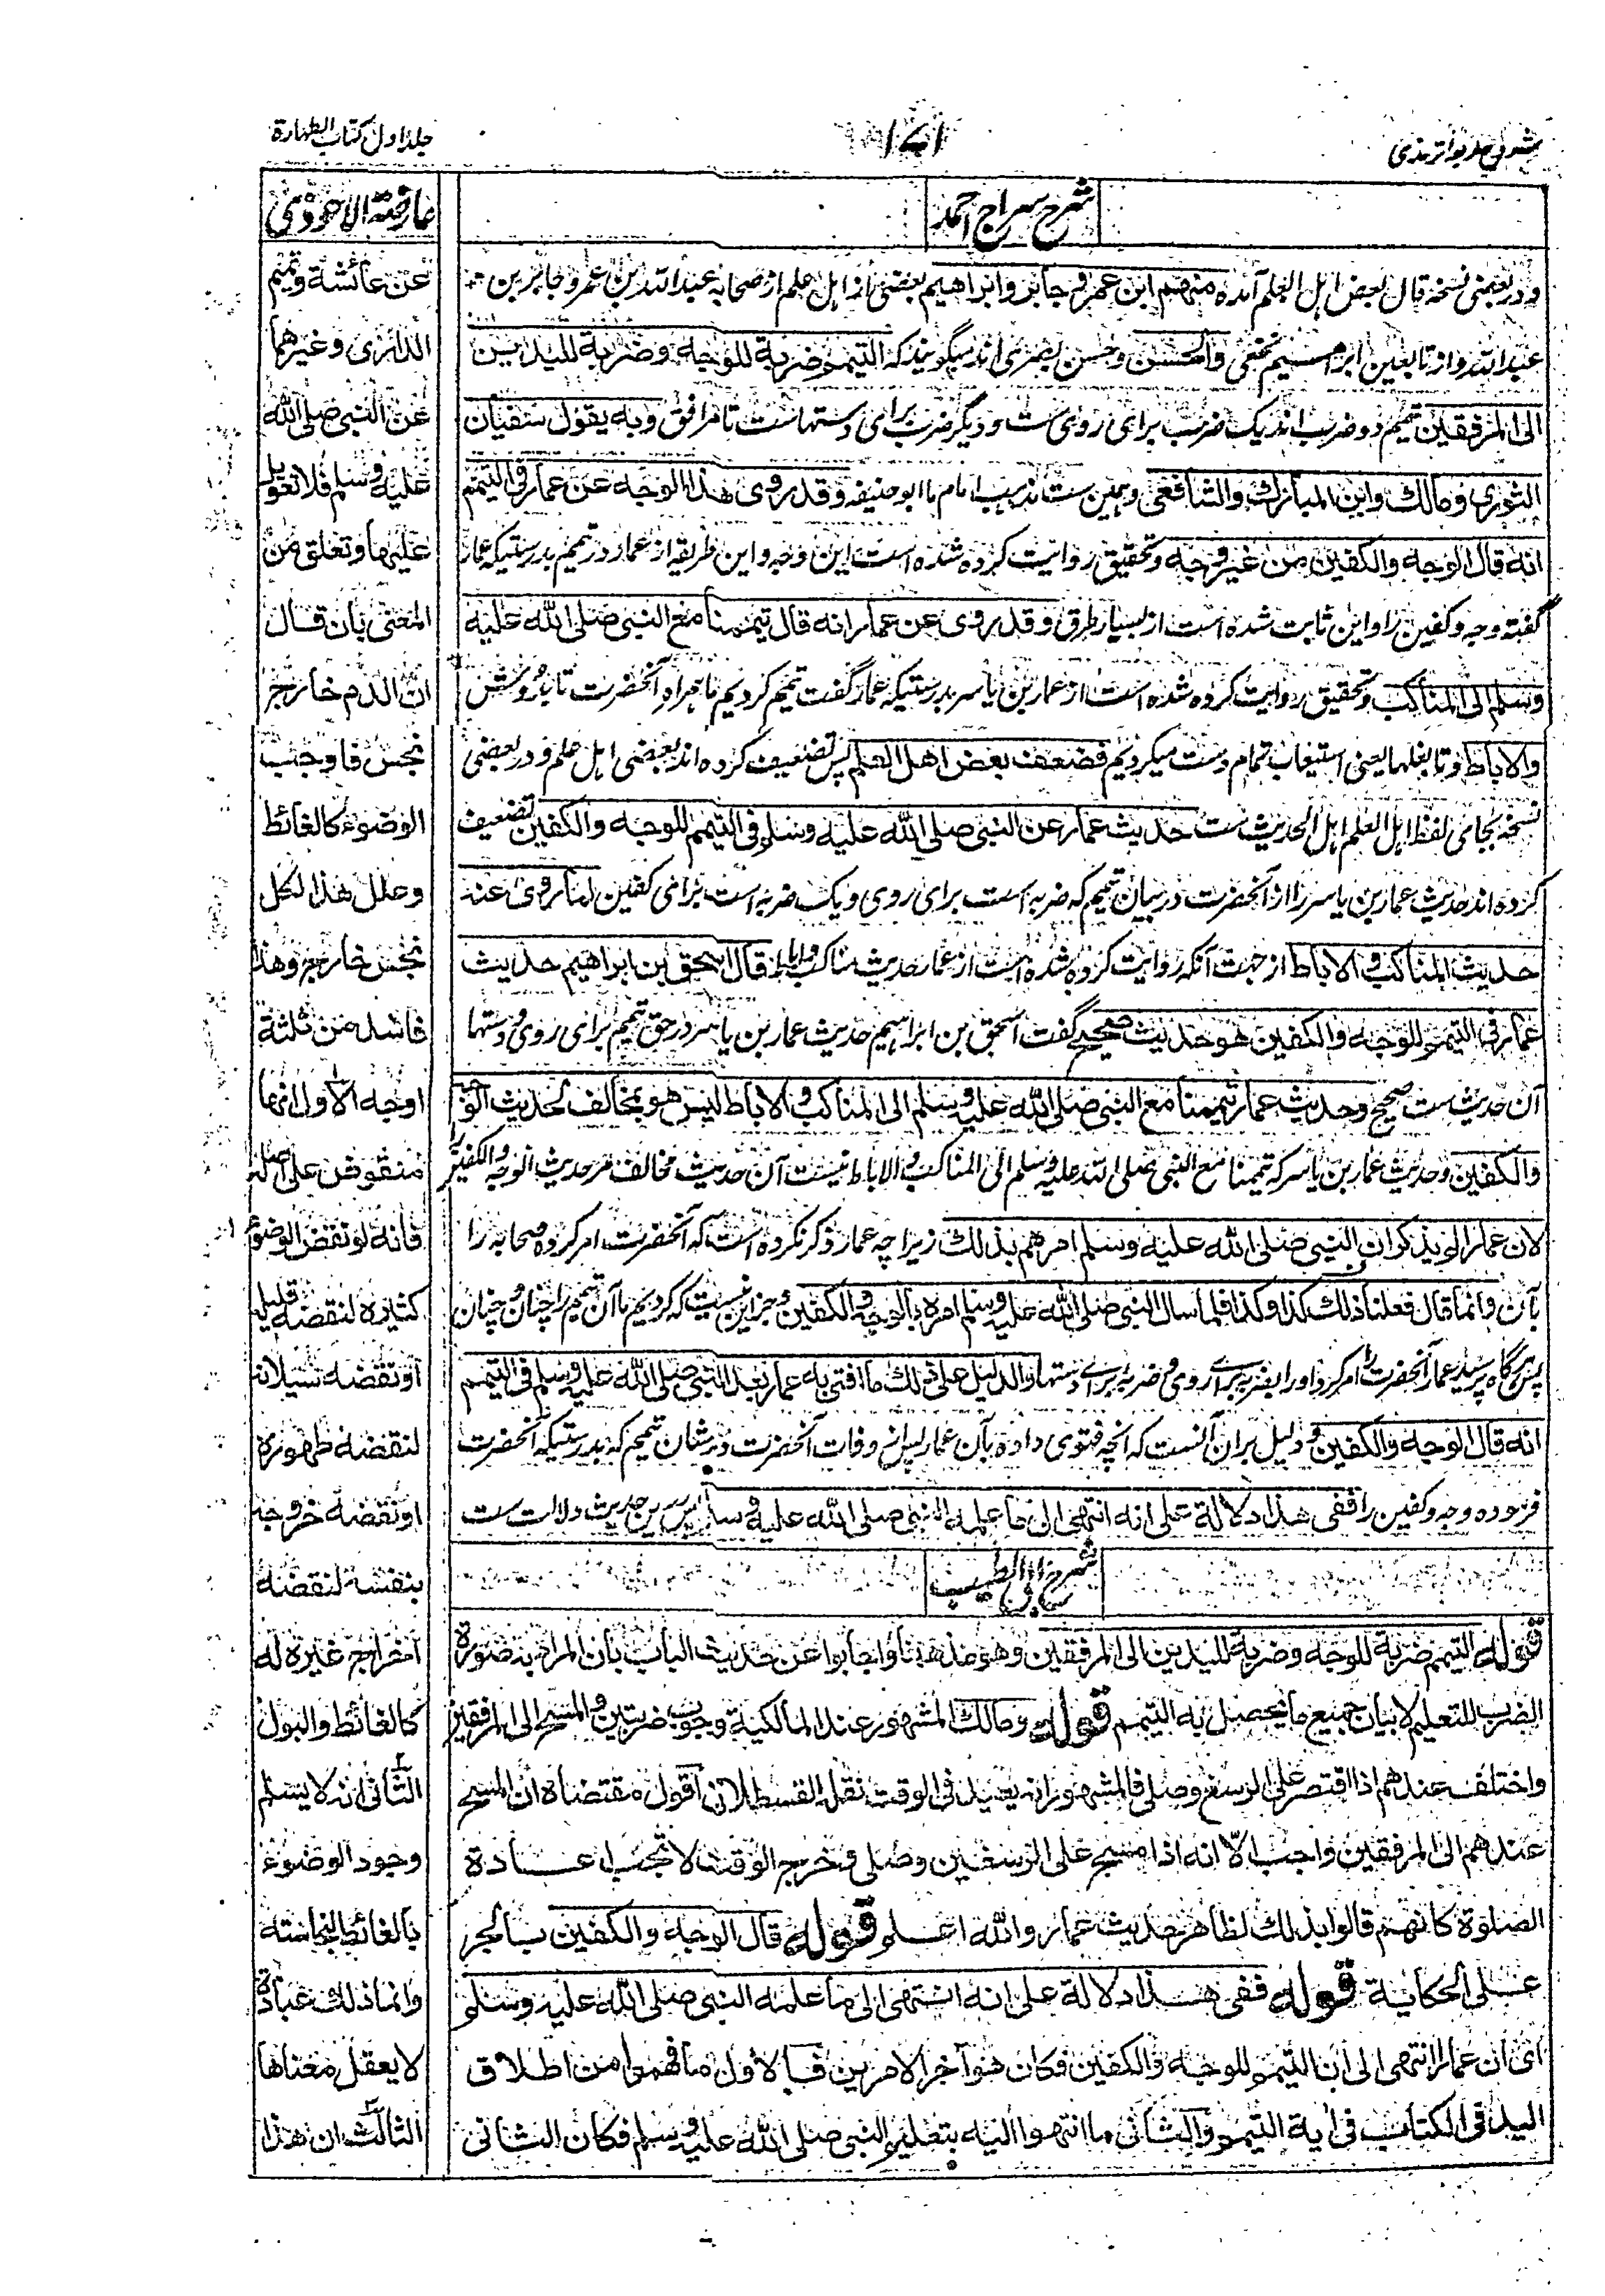 شروح اربعه ترمذی
۱۷۱
جلد اول کتاب الطهارة
شرح سراج احمد
ودر بعضی نسخه قال بعض اهل العلم آمده منهم ابن عمر وجابر وابراهیم بعضی از اهل علم از صحابه عبدالله بن عمر وجابر بن
عبدالله واز تابعین ابراهیم نخعی والحسن وحسن بصری اند میگویند که التیمم ضربة للوجه وضربة للیدین
الی المرفقین تیمم دو ضرب اند یک ضرب برای روی ست ودیگر ضرب برای دستهاست تا مرافق وبه یقول سفیان
الثوری ومالك وابن المبارك والشافعی وهمین ست مذهب امام ما ابو حنیفه وقد روی هذا الوجه عن عمار فی التیمم
انه قال الوجه والکفین من غیر وجه وتحقیق روایت کرده شده است این وجه واین طریقه از عمار در تیمم بدرستیکه عمار
گفته وجه وکفین را واین ثابت شده است از بسیار طرق وقد روی عن عمار انه قال تیممنا مع النبی صلی الله علیه
وسلم الی المناکب وتحقیق روایت کرده شده است از عمار بن یاسر بدرستیکه عمار گفت تیمم کردیم ما همراه آنحضرت تا بدوش
والاباط وتا بغلها یعنی استیعاب تمام دست میکردیم فضعف بعض اهل العلم پس تضعیف کرده اند بعضی اهل علم ودر بعضی
نسخه بجای لفظ اهل العلم اهل الحدیث ست حدیث عمار عن النبی صلی الله علیه وسلم فی التیمم للوجه والکفین تضعیف
کرده اند حدیث عمار بن یاسر را از آنحضرت در بیان تیمم که ضربه است برای روی ویک ضربه است برای کفین لما روی عنه
حدیث المناکب والاباط از جهت آنکه روایت کرده شده است از عمار حدیث مناکب واباط قال اسحق بن ابراهیم حدیث
عمار فی التیمم للوجه والکفین هو حدیث صحیح گفت اسحق بن ابراهیم حدیث عمار بن یاسر در حق تیمم برای روی ودستها
آن حدیث ست صحیح وحدیث عمار تیممنا مع النبی صلی الله علیه وسلم الی المناکب والاباط لیس هو بمخالف لحدیث الوجه
والکفین وحدیث عمار بن یاسر که تیممنا مع النبی صلی الله علیه وسلم الی المناکب والاباط نیست آن حدیث مخالف مر حدیث الوجه والکفین را
لان عمارا لم یذکر ان النبی صلی الله علیه وسلم امرهم بذلك زیرا چه عمار ذکر نکرده است که آنحضرت امر کرده صحابه را
بآن وانما قال فعلنا ذلك کذا وکذا فلما سأل النبی صلی الله علیه وسلم امره بالوجه والکفین وجز این نیست که کردیم ما آن تیمم را چنان وچنان
پس هرگاه پرسید عمار آنحضرت را امر کرد او را بضربه برای روی وضربه برای دستها والدلیل علی ذلك ما افتی به عمار بعد النبی صلی الله علیه وسلم فی التیمم
انه قال الوجه والکفین ودلیل بران آنست که آنچه فتوی داده بآن عمار پس از وفات آنحضرت در شان تیمم که بدرستیکه آنحضرت
فرموده وجه وکفین را ففی هذا دلالة علی انه انتهی الی ما علمه النبی صلی الله علیه وسلم پس درین حدیث دلالت ست
شرح ابی الطیب
قوله التیمم ضربة للوجه وضربة للیدین الی المرفقین وهو مذهبنا واجابوا عن حدیث الباب بان المراد به صورة
الضرب للتعلیم لا بیان جمیع ما یحصل به التیمم قوله ومالك المشهور عند المالکیة وجوب ضربتین والمسح الی المرفقین
واختلف عندهم اذا اقتصر علی الرسغ وصلی فالمشهور انه یعید فی الوقت نقل القسطلانی اقول مقتضاه ان المسح
عندهم الی المرفقین واجب الا انه اذا مسح علی الرسغین وصلی وخرج الوقت لا تجب اعادة
الصلوة کانهم قالوا بذلك لظاهر حدیث عمار والله اعلم قوله قال الوجه والکفین بالجر
علی الحکایة قوله ففی هذا دلالة علی انه انتهی الی ما علمه النبی صلی الله علیه وسلم
ای ان عمارا انتهی الی ان التیمم للوجه والکفین فکان هو آخر الامرین فالاول ما فهموا من اطلاق
الید فی الکتاب فی آیة التیمم والثانی ما انتهوا الیه بتعلیم النبی صلی الله علیه وسلم فکان الثانی
عارضة الاحوذی
عن عائشة وتمیم
الداری وغیرهما
عن النبی صلی الله
علیه وسلم فلا تعویل
علیها وتعلق من
المعنی بان قال
ان الدم خارج
نجس فاوجب
الوضوء کالغائط
وعلل هذا لکل
نجس خارج وهذا
فاسد من ثلثة
اوجه الاول انها
منقوض علی اصله
فانه لو نقض الوضوء
کثیره لنقضه قلیله
او نقضه سیلانه
لنقضه ظهوره
او نقضه خروجه
بنفسه لنقضه
اخراج غیره له
کالغائط والبول
الثانی انه لا یسلم
وجود الوضوء
بالغائط لنجاسته
وانما ذلك عبادة
لا یعقل معناها
الثالث ان هذا